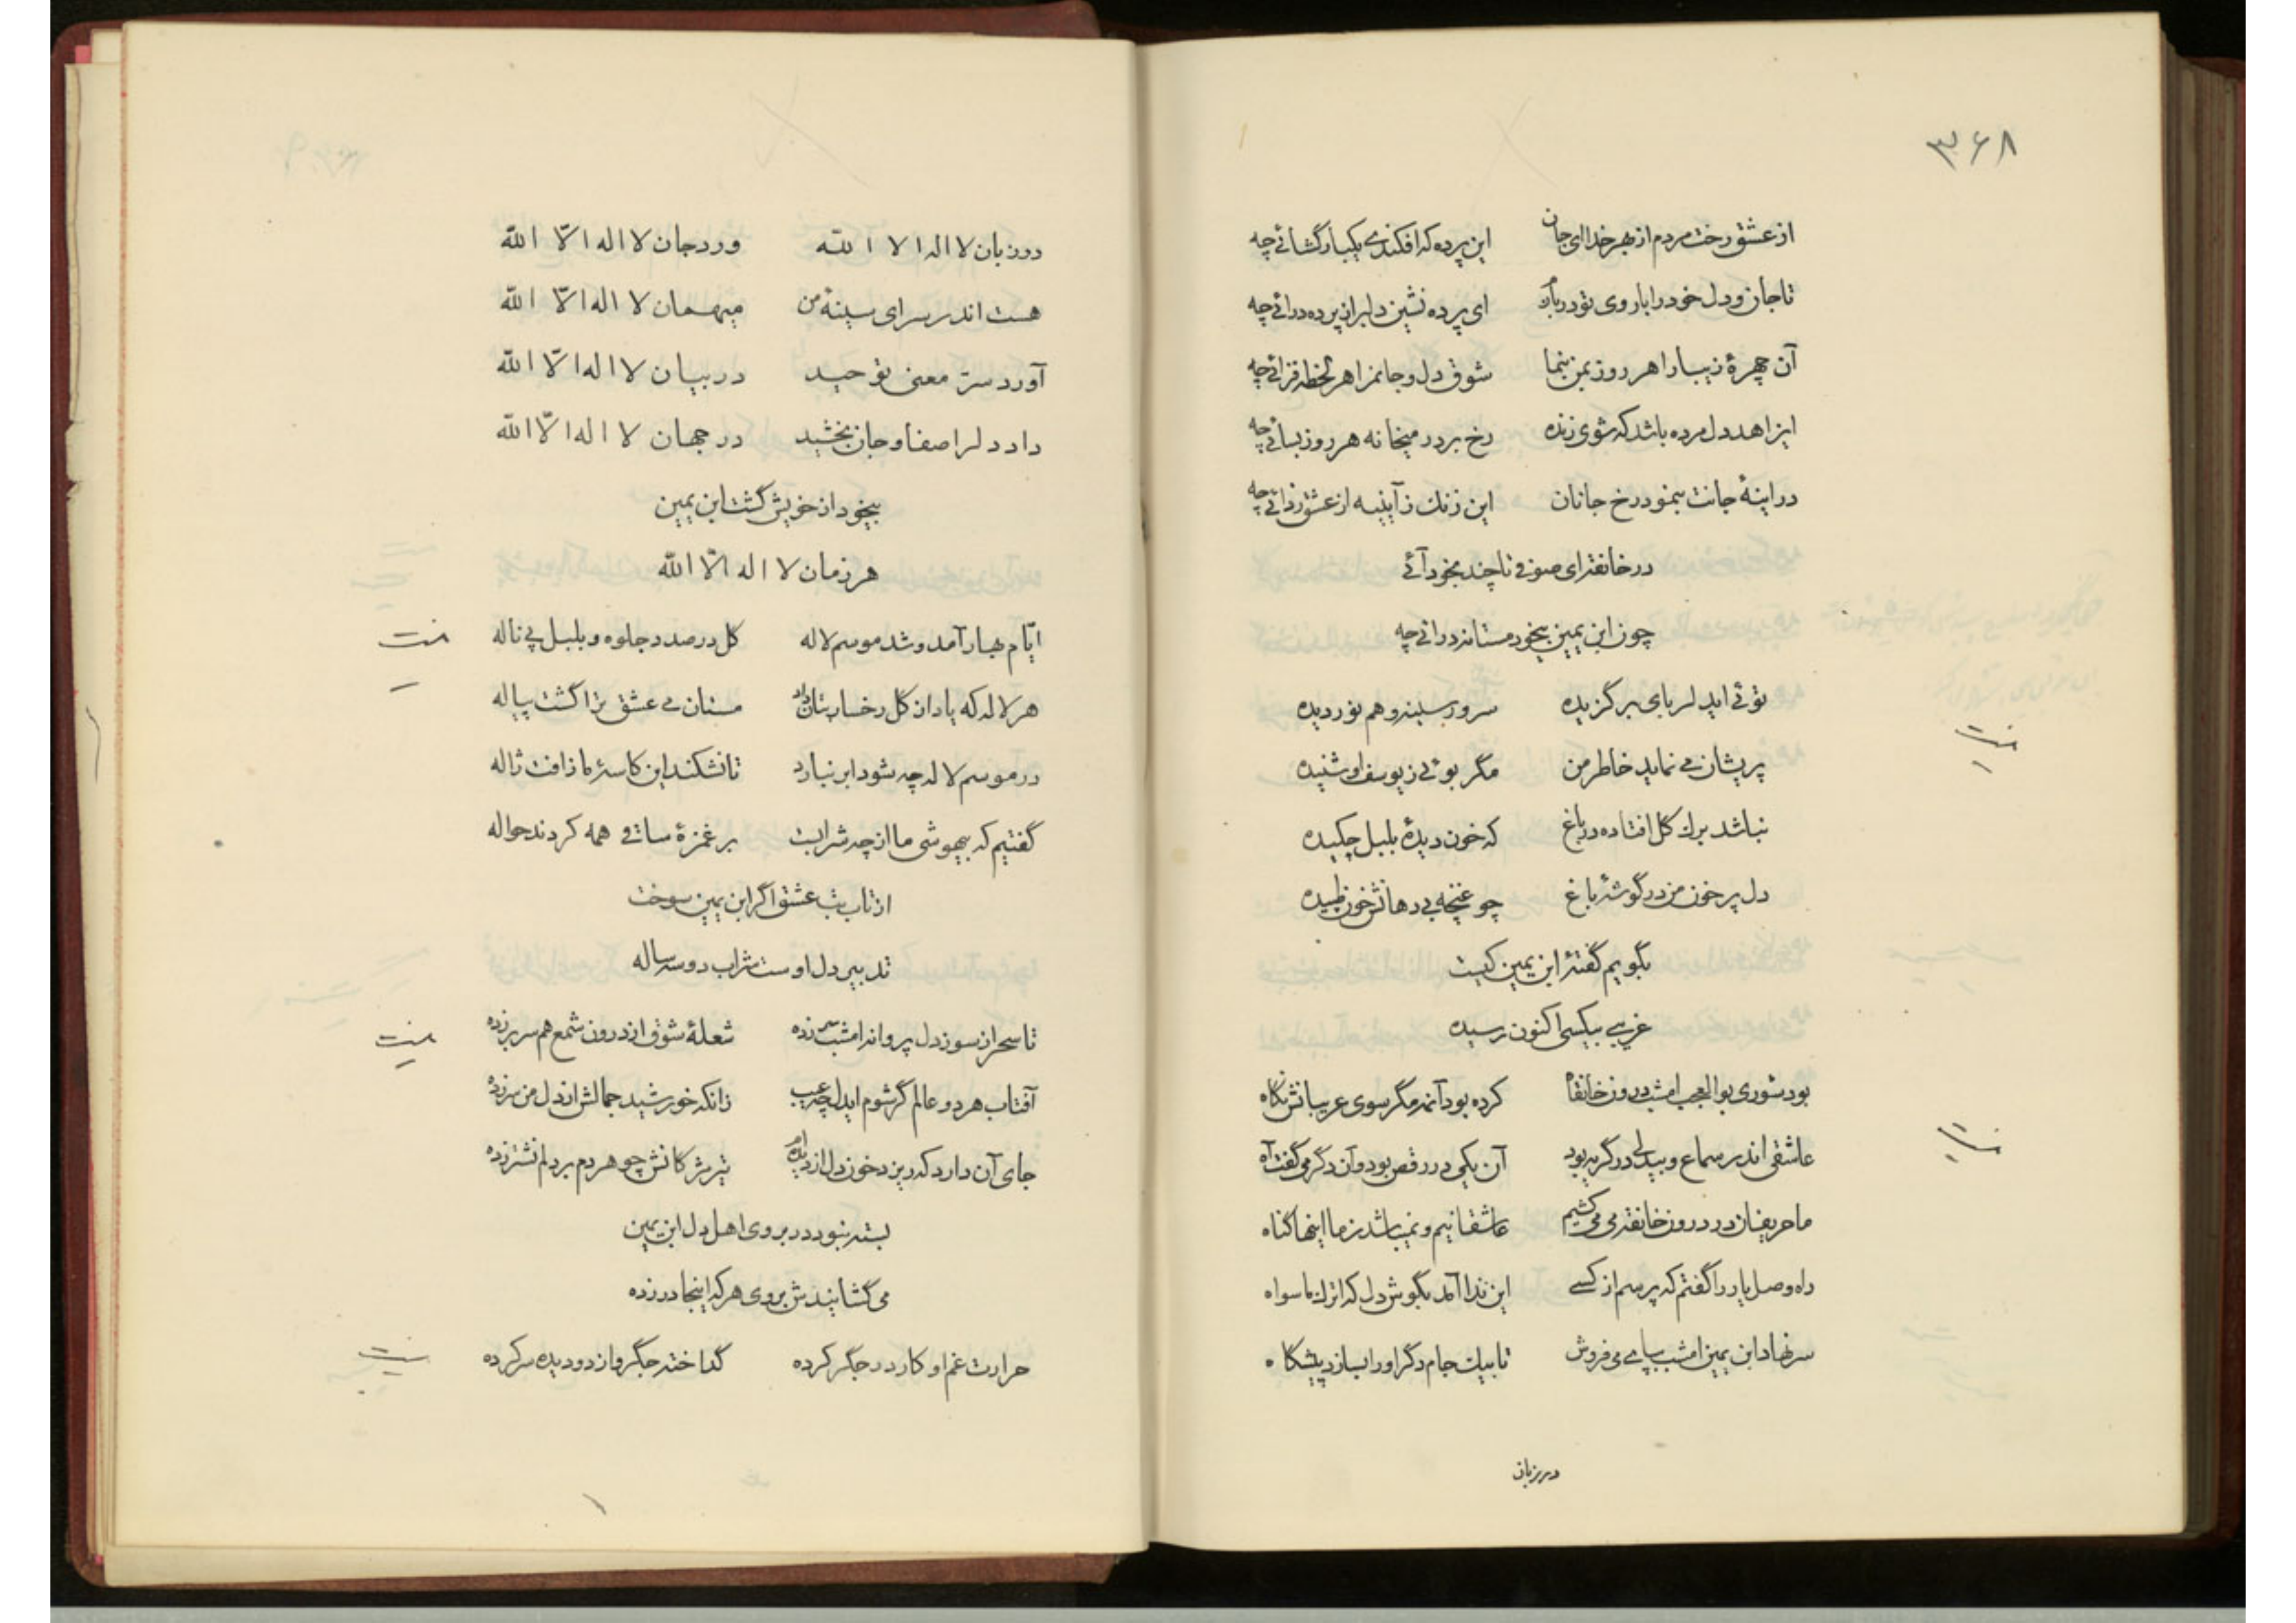 ۳۶۸
از عشق رخت مردم از بهر خدا ای جان این پرده که افکندی یکبار گشائے چه
تا جان و دل خود را با روی تو دربازد ای پرده نشین دلبر از پرده درائے چه
آن چهرهٔ زیبا را هر روز بمن بنما شوق دل و جانمرا هر لحظه فزائے چه
ای زاهد دل مرده باشد که شوی زنده رخ بر در میخانه هر روز بسائے چه
در اینهٔ جانت بنمود رخ جانان این زنك ز آیینه از عشق زدائے چه
در خانقه ای صوفی تا چند بخود آئے
چون ابن یمین بیخود مستانه درائے چه
توئے ایدلربای برگزیده سرور سینه و هم نور دیده
پریشان مے نماید خاطر من مگر بوئے ز یوسف او شنیده
نباشد برك گل افتاده در باغ که خون دیدهٔ بلبل چکیده
دل پر خون من در گوشهٔ باغ چو غنچه بے دهانش خون طپیده
بگویم گفتهٔ ابن یمین کیست
غریبے بیکسی اکنون رسیده
بود شوری بوالعجب امشب درون خانقاه کرده بود آنمه مگر سوی غریبانش نگاه
عاشقی اندر سماع و بیدلی در گریه بود آن یکی در رقص بود و آن دگر می گفت آه
ما حریفان در درون خانقه می می کشیم عاشقانیم و نمیباشد ز ما اینها گناه
راه وصل یار را گفتم که پرسم از کسے این ندا آمد بگوش دل که اترك ماسواه
سر نهاد ابن یمین امشب بپاے می فروش تا بیك جام دگر او را بسازد پیشگاه
در زبان
درد زبان لا اله الا الله ورد جان لا اله الّا الله
هست اندر سرای سینهٔ من میهمان لا اله الّا الله
آورد سرّ معنی توحید در بیان لا اله الّا الله
داد دلرا صفا و جان بخشید در جهان لا اله الّا الله
بیخود از خویش گشت ابن یمین
هر زمان لا اله الّا الله
ایّام بهار آمد و شد موسم لاله گل در صدد جلوه و بلبل پی ناله
هر لاله که یاد از گل رخسار بتان داد مستان می عشق ترا گشت پیاله
در موسم لاله چه شود ابر نبارد تا نشکند این کاسهٔ ما ز افت ژاله
گفتیم که بیهوشی ما از چه شرابست بر غمزهٔ ساقی همه کردند حواله
از تاب تب عشق اگر ابن یمین سوخت
تدبیر دل اوست شراب دو سه ساله
تا سحر از سوز دل پروانه امشب سر زده شعلهٔ شوق از درون شمع هم سر بر زده
آفتاب هر دو عالم گر شوم ایدل چه عیب زانکه خورشید جمالش از دل من سر زده
جای آن دارد که ریزد خون دل از دیده‌ام تیر مژگانش چو هر دم بر دلم نشتر زده
بسته نبود در بروی اهل دل ابن یمین
می گشایندش بروی هر که اینجا در زده
حرارت غم او کار در جگر کرده گداخته جگر و از دو دیده سر کرده